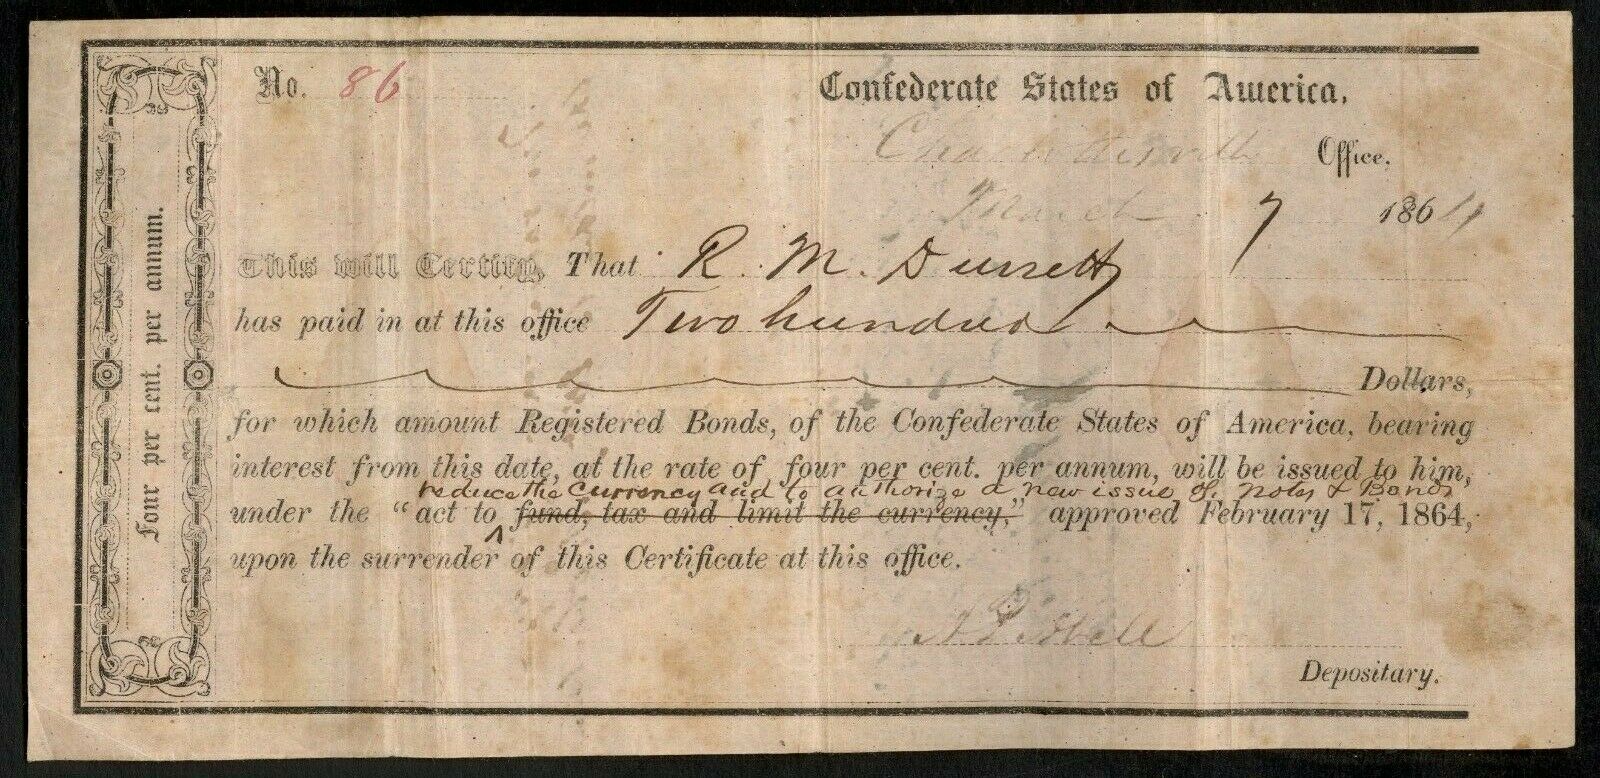 Four per cent. per annum.
No. 86
Confederate States of America.
Charlottesville Office.
March 7 1864
This will Certify, That R. M. Durrett
has paid in at this office Two hundred
Dollars,
for which amount Registered Bonds, of the Confederate States of America, bearing
interest from this date, at the rate of four per cent. per annum, will be issued to him,
reduce the currency and to authorize a new issue of notes & Bonds
under the "act to fund, tax and limit the currency," approved February 17, 1864,
upon the surrender of this Certificate at this office.
Depositary.